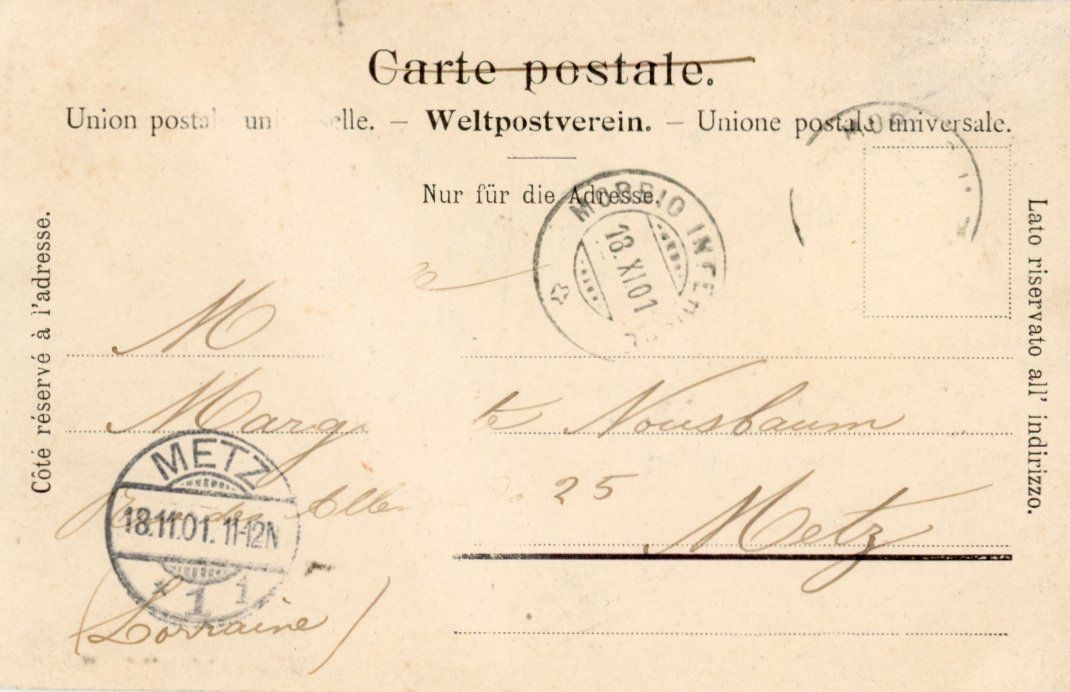 Carte postale.
Union postale universelle. – Weltpostverein. – Unione postale universale.
Nur für die Adresse.
Côté réservé à l'adresse.
Lato riservato all' indirizzo.
MORBIO INFER
18.XI.01
MOR
M
Marg te Nousbaum
25
Metz
(Lorraine)
METZ
18.11.01. 11-12N
* 1 i